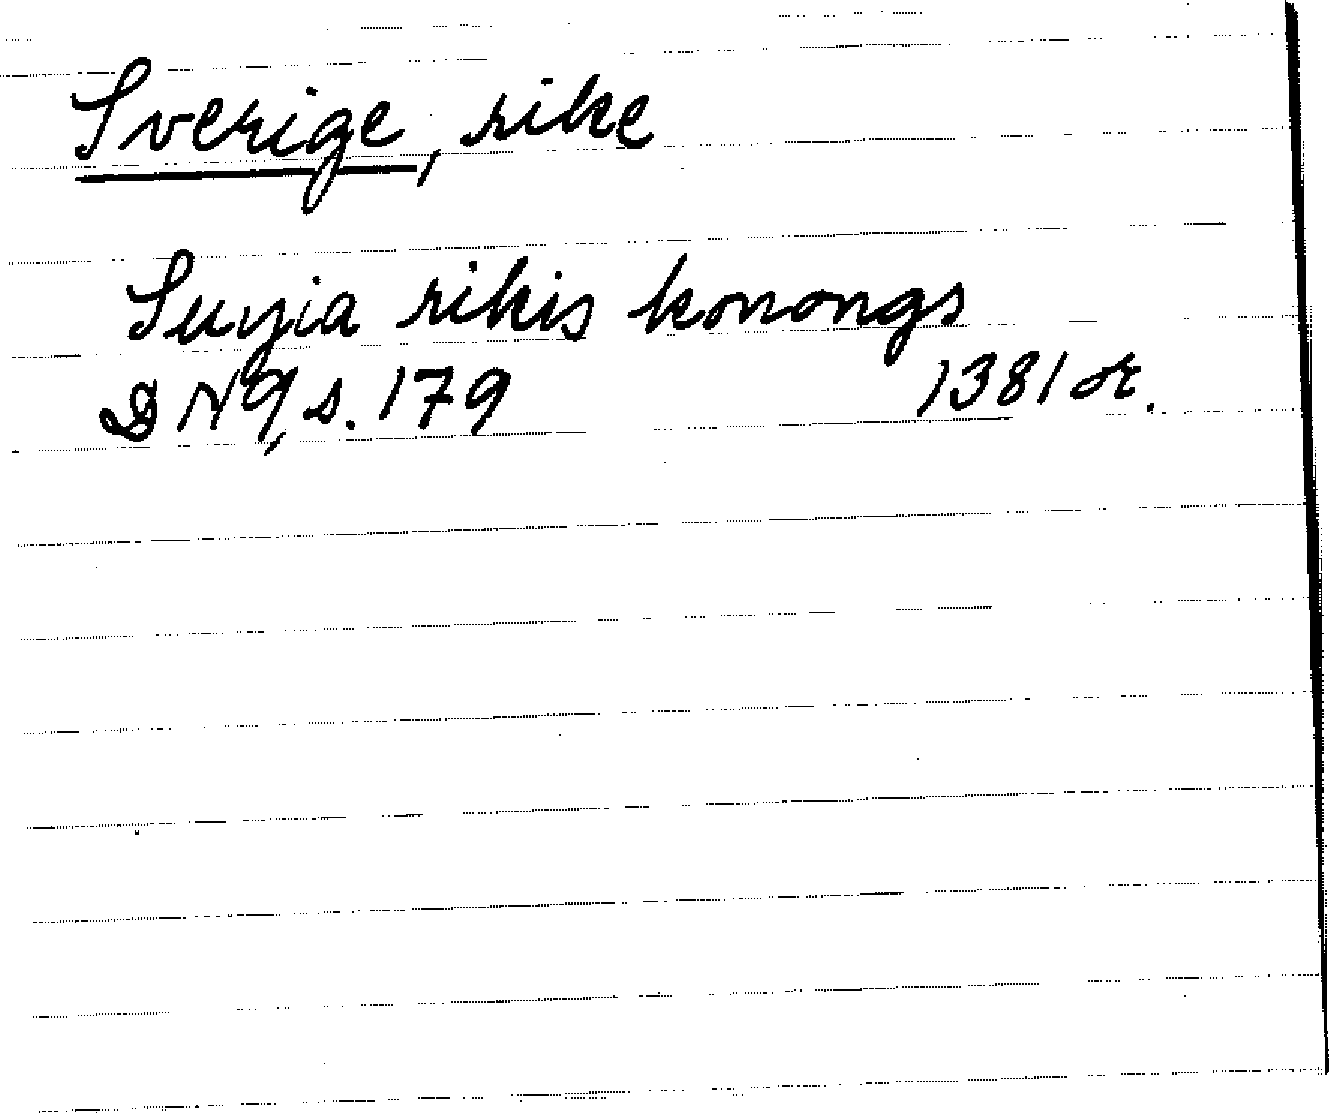 Sverige, rike
Suyia rikis konongs
DN 9, s. 179 1381 or.